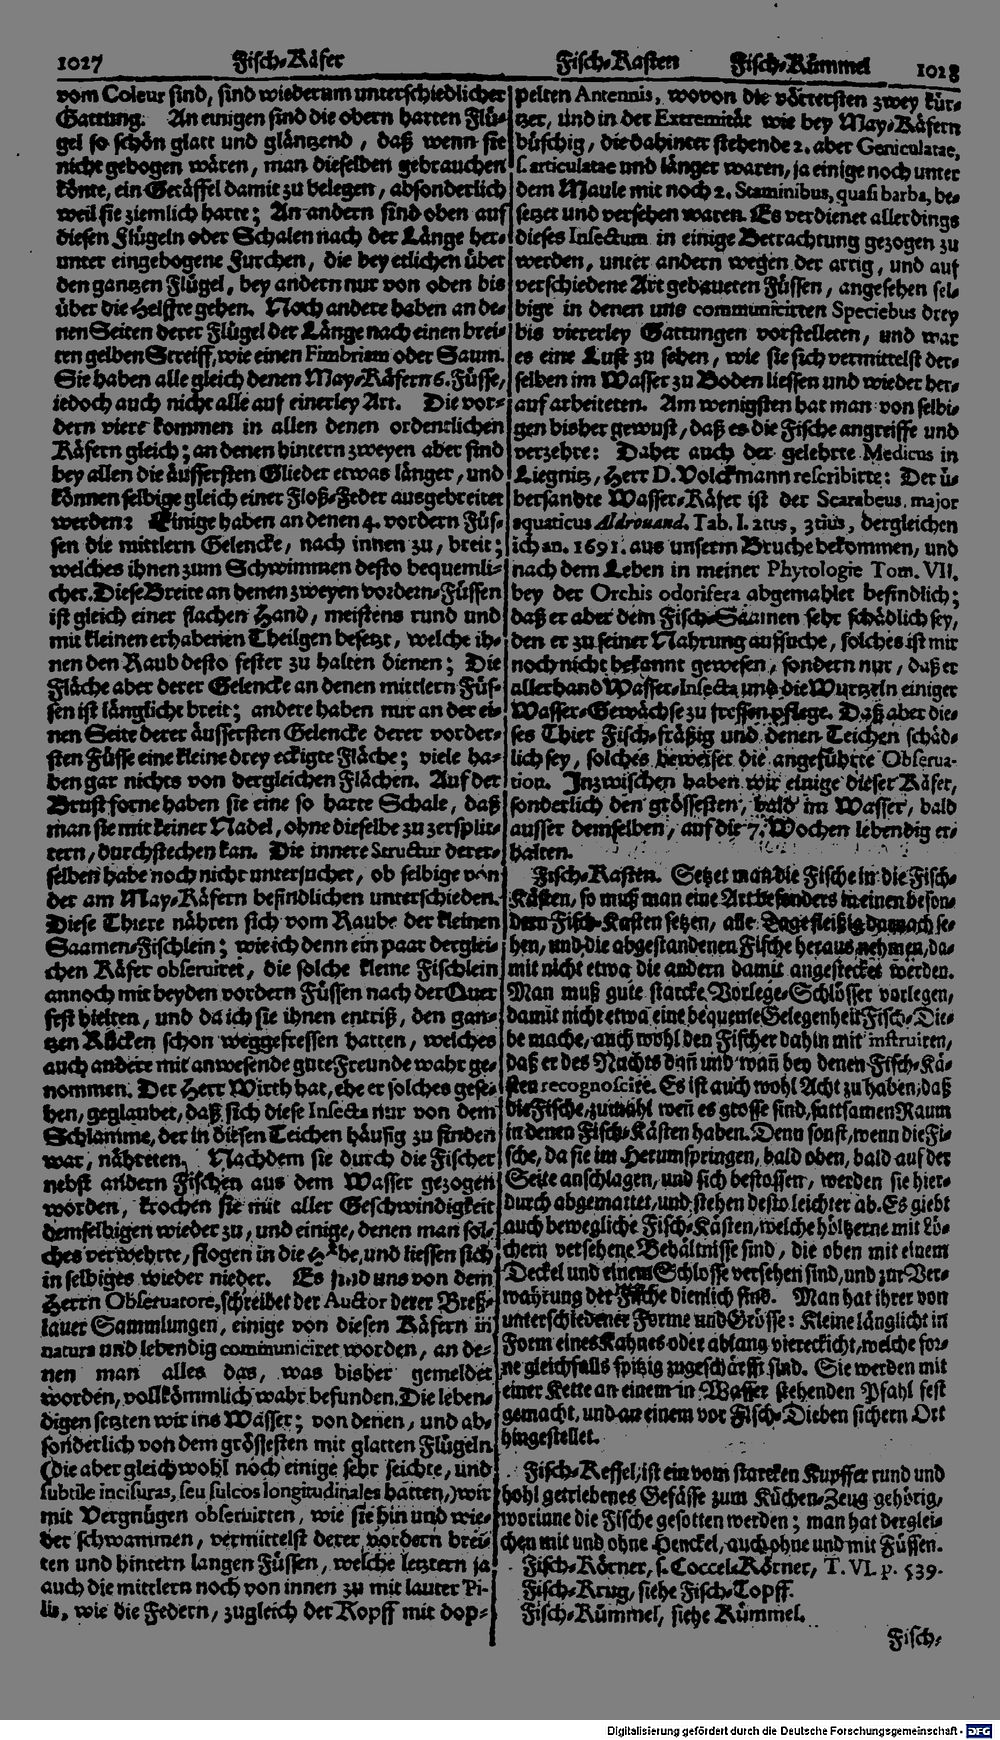 1027 Fisch-Käfer Fisch-Kasten Fisch-Kümmel 1028
vom Coleur sind, sind wiederum unterschiedlicher
Gattung. An einigen sind die obern harten Flü-
gel so schön glatt und gläntzend, daß wenn sie
nicht gebogen wären, man dieselben gebrauchen
könte, ein Getäffel damit zu belegen, absonderlich
weil sie ziemlich harte; An andern sind oben auf
diesen Flügeln oder Schalen nach der Länge her-
unter eingebogene Furchen, die bey etlichen über
den gantzen Flügel, bey andern nur von oben bis
über die Helffte gehen. Noch andere haben an de-
nen Seiten derer Flügel der Länge nach einen brei-
ten gelben Streiff, wie einen Fimbriam oder Saum.
Sie haben alle gleich denen May-Käfern 6. Füsse,
iedoch auch nicht alle auf einerley Art. Die vor-
dern viere kommen in allen denen ordentlichen
Käfern gleich; an denen hintern zweyen aber sind
bey allen die äussersten Glieder etwas länger, und
können selbige gleich einer Floß-Feder ausgebreitet
werden: Einige haben an denen 4. vordern Füs-
sen die mittlern Gelencke, nach innen zu, breit;
welches ihnen zum Schwimmen desto bequemli-
cher. Diese Breite an denen zweyen vordern Füssen
ist gleich einer flachen Hand, meistens rund und
mit kleinen erhabenen Theilgen besetzt, welche ih-
nen den Raub desto fester zu halten dienen; Die
Fläche aber derer Gelencke an denen mittlern Füs-
sen ist länglicht breit; andere haben nur an der ei-
nen Seite derer äussersten Gelencke derer vorder-
sten Füsse eine kleine drey eckigte Fläche; viele ha-
ben gar nichts von dergleichen Flächen. Auf der
Brust forne haben sie eine so harte Schale, daß
man sie mit keiner Nadel, ohne dieselbe zu zersplit-
tern, durchstechen kan. Die innere Structur derer-
selben habe noch nicht untersuchet, ob selbige von
der am May-Käfern befindlichen unterschieden.
Diese Thiere nähren sich vom Raube der kleinen
Saamen-Fischlein; wie ich denn ein paar derglei-
chen Käfer observiret, die solche kleine Fischlein
annoch mit beyden vordern Füssen nach der Quer
fest hielten, und da ich sie ihnen entriß, den gan-
tzen Rücken schon weggefressen hatten, welches
auch andere mit anwesende gute Freunde wahr ge-
nommen. Der Herr Wirth hat, ehe er solches gese-
hen, geglaubet, daß sich diese Insecta nur von dem
Schlamme, der in diesen Teichen häufig zu finden
war, nähreten. Nachdem sie durch die Fischer
nebst andern Fischen aus dem Wasser gezogen
worden, krochen sie mit aller Geschwindigkeit
demselbigen wieder zu, und einige, denen man sol-
ches verwehrte, flogen in die Höhe, und liessen sich
in selbiges wieder nieder. Es sind uns von dem
Herrn Observatore, schreibet der Auctor derer Breß-
lauer Sammlungen, einige von diesen Käfern in
natura und lebendig communiciret worden, an de-
nen man alles das, was bisher gemeldet
worden, vollkömmlich wahr befunden. Die leben-
digen setzten wir ins Wasser; von denen, und ab-
sonderlich von dem grössesten mit glatten Flügeln
(die aber gleichwohl noch einige sehr seichte, und
subtile incisuras, seu sulcos longitudinales hatten,) wir
mit Vergnügen observirten, wie sie hin und wie-
der schwammen, vermittelst derer vordern brei-
ten und hintern langen Füssen, welche letztern ja
auch die mittlern noch von innen zu mit lauter Pi-
lis, wie die Federn, zugleich der Kopff mit dop-
pelten Antennis, wovon die vördersten zwey kür-
tzer, und in der Extremität wie bey May-Käfern
büschig, die dahinter stehende 2. aber Geniculatae,
s. articulatae und länger waren, ja einige noch unter
dem Maule mit noch 2. Staminibus, quasi barba, be-
setzet und versehen waren. Es verdienet allerdings
dieses Insectum in einige Betrachtung gezogen zu
werden, unter andern wegen der artig, und auf
verschiedene Art gebaueten Füssen, angesehen sel-
bige in denen uns communicirten Speciebus drey
bis viererley Gattungen vorstelleten, und war
es eine Lust zu sehen, wie sie sich vermittelst der-
selben im Wasser zu Boden liessen und wieder her-
auf arbeiteten. Am wenigsten hat man von selbi-
gen bisher gewust, daß es die Fische angreiffe und
verzehre: Daher auch der gelehrte Medicus in
Liegnitz, Herr D. Volckmann rescribirte: Der ü-
bersandte Wasser-Käfer ist der Scarabeus major
aquaticus Aldrouand. Tab. I. 2tus, 3tius, dergleichen
ich an. 1691. aus unserm Bruche bekommen, und
nach dem Leben in meiner Phytologie Tom. VII.
bey der Orchis odorifera abgemahlet befindlich;
daß er aber dem Fisch-Saamen sehr schädlich sey,
den er zu seiner Nahrung aufsuche, solches ist mir
noch nicht bekannt gewesen, sondern nur, daß er
allerhand Wasser-Insecta und die Wurtzeln einiger
Wasser-Gewächse zu fressen pflege. Daß aber die-
ses Thier Fisch-fräßig und denen Teichen schäd-
lich sey, solches beweiset die angeführte Observa-
tion. Inzwischen haben wir einige dieser Käfer,
sonderlich den grössesten, bald im Wasser, bald
ausser demselben, auf die 7. Wochen lebendig er-
halten.
Fisch-Kasten. Setzet man die Fische in die Fisch-
Kästen, so muß man eine Art besonders in einen beson-
dern Fisch-Kasten setzen, alle Tage fleißig darnach se-
hen, und die abgestandenen Fische heraus nehmen, da-
mit nicht etwa die andern damit angestecket werden.
Man muß gute starcke Vorlege-Schlösser vorlegen,
damit nicht etwa eine bequeme Gelegenheit Fisch-Die-
be mache, auch wohl den Fischer dahin mit instruiren,
daß er des Nachts dañ und wañ bey denen Fisch-Kä-
sten recognoscire. Es ist auch wohl Acht zu haben, daß
die Fische, zumahl weñ es grosse sind, sattsamen Raum
in denen Fisch-Kästen haben. Denn sonst, wenn die Fi-
sche, da sie im Herumspringen, bald oben, bald auf der
Seite anschlagen, und sich bestossen, werden sie hier-
durch abgemattet, und stehen desto leichter ab. Es giebt
auch bewegliche Fisch-Kästen, welche höltzerne mit Lö-
chern versehene Behältnisse sind, die oben mit einem
Deckel und einem Schlosse versehen sind, und zur Ver-
wahrung der Fische dienlich sind. Man hat ihrer von
unterschiedener Forme und Grösse: Kleine länglicht in
Form eines Kahnes oder ablang viereckicht, welche for-
ne gleichfalls spitzig zugeschärfft sind. Sie werden mit
einer Kette an einem in Wasser stehenden Pfahl fest
gemacht, und an einem vor Fisch-Dieben sichern Ort
hingestellet.
Fisch-Kessel, ist ein vom starcken Kupffer rund und
hohl getriebenes Gefässe zum Küchen-Zeug gehörig,
worinne die Fische gesotten werden; man hat derglei-
chen mit und ohne Henckel, auch ohne und mit Füssen.
Fisch-Körner, s. Coccel-Körner, T. VI. p. 539.
Fisch-Krug, siehe Fisch-Topff.
Fisch-Kümmel, siehe Kümmel.
Fisch-
Digitalisierung gefördert durch die Deutsche Forschungsgemeinschaft - DFG